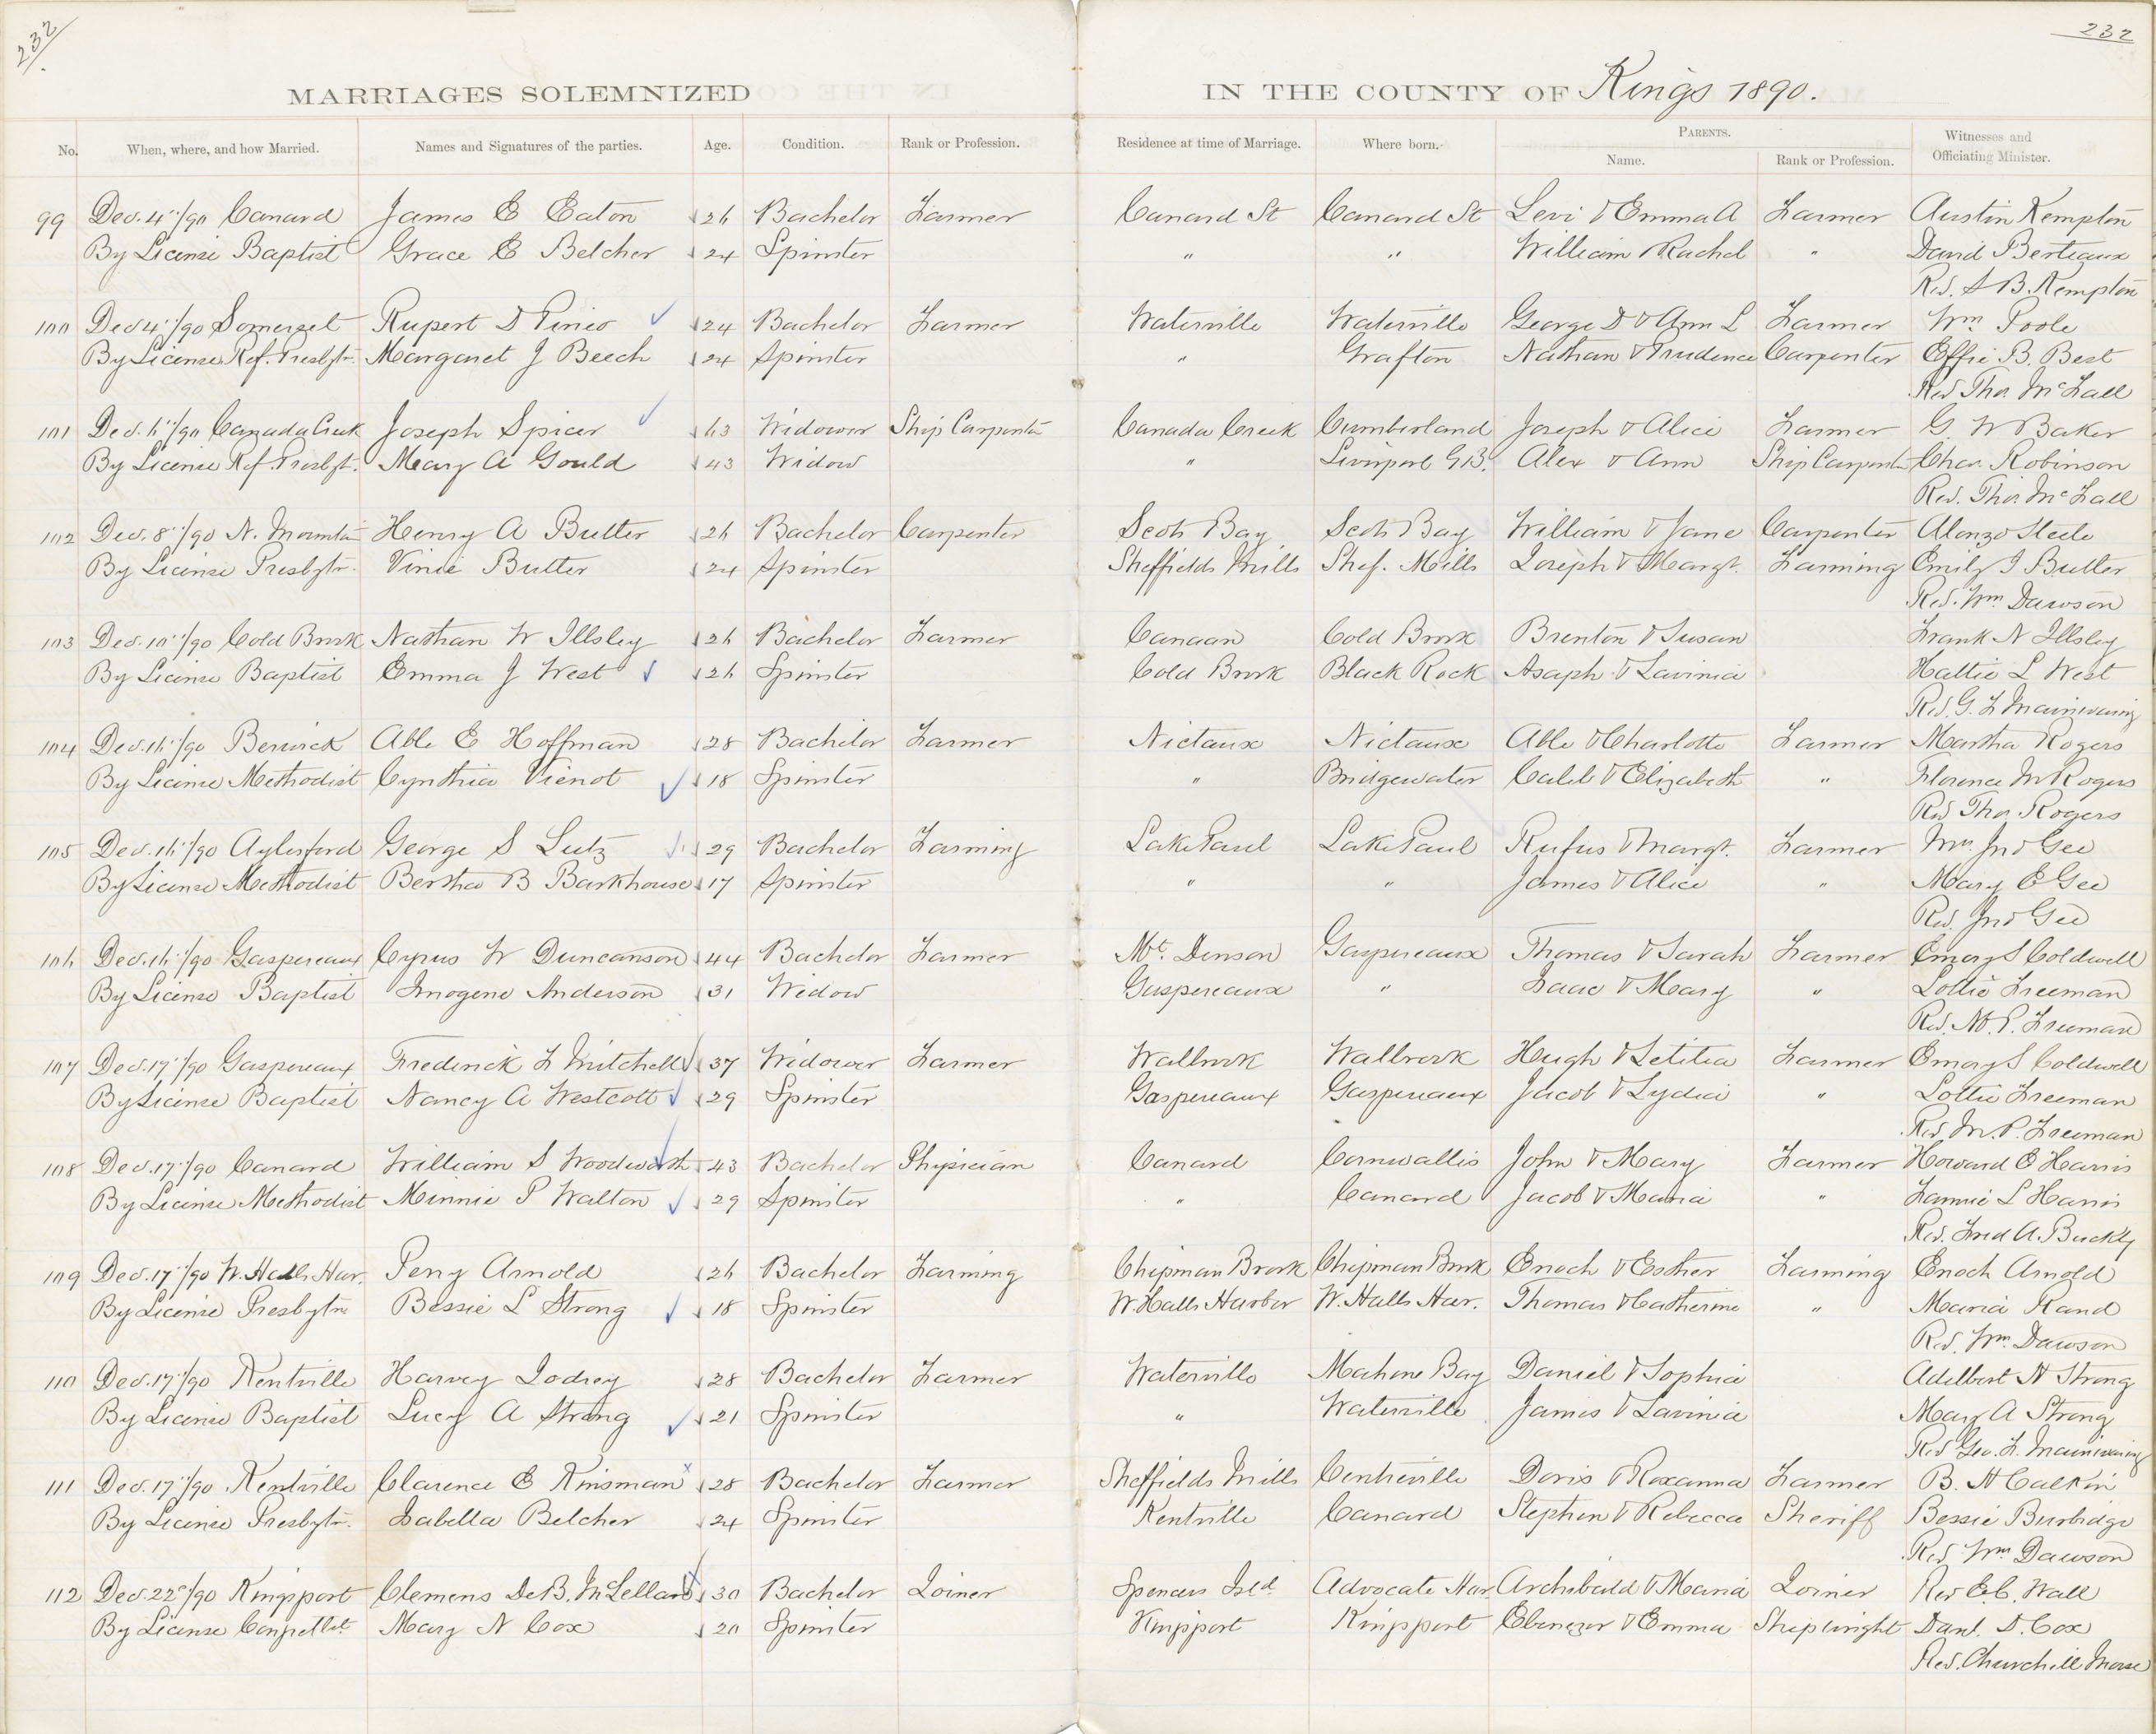 232
232
MARRIAGES SOLEMNIZED IN THE COUNTY OF Kings 1890.
No. When, where, and how Married. Names and Signatures of the parties. Age. Condition. Rank or Profession. Residence at time of Marriage. Where born. PARENTS. Name. Rank or Profession. Witnesses and Officiating Minister.
99 Dec. 4"/90 Canard James E Eaton 26 Bachelor Farmer Canard St Canard St Levi & Emma A Farmer Austin Kempton
By License Baptist Grace E Belcher 24 Spinster " " William Rachel " David Berteaux
Rev. S B. Kempton
100 Dec 4"/90 Somerset Rupert D Pineo 24 Bachelor Farmer Waterville Waterville George D & Ann L Farmer Wm Poole
By License Ref. Presbytr. Margaret J Beech 24 Spinster " Grafton Nathan & Prudence Carpenter Effie B. Best
Rev Thos McFall
101 Dec. 6"/90 Canada Creek Joseph Spicer 63 Widower Ship Carpenter Canada Creek Cumberland Joseph & Alice Farmer G. W Baker
By License Ref. Presbyt. Mary A Gould 43 Widow " Liverpool G.B. Alex & Ann Ship Carpenter Chas. Robinson
Rev. Thos McFall
102 Dec. 8"/90 N. Mountn Henry A Butler 26 Bachelor Carpenter Scots Bay Scots Bay William & Jane Carpenter Alonzo Steele
By License Presbytr. Vinie Butler 24 Spinster Sheffields Mills Shef. Mills Joseph & Margt. Farming Emily J Butler
Rev. Wm Dawson
103 Dec. 10"/90 Cold Brook Nathan W Illsley 26 Bachelor Farmer Canaan Cold Brook Brenton & Susan Frank N Illsley
By License Baptist Emma J West 26 Spinster Cold Brook Black Rock Asaph & Lavinia Hattie L West
Rev. G. F Mainwaring
104 Dec. 16"/90 Berwick Able E Hoffman 28 Bachelor Farmer Nictaux Nictaux Able & Charlotte Farmer Martha Rogers
By License Methodist Cynthia Vienot 18 Spinster " Bridgewater Caleb & Elizabeth " Florence M Rogers
Rev Thos. Rogers
105 Dec. 16"/90 Aylesford George S Lutz 29 Bachelor Farming Lake Paul Lake Paul Rufus & Margt. Farmer Mrs. Jno Gee
By License Methodist Bertha B Barkhouse 17 Spinster " " James & Alice " Mary E Gee
Rev. Jno Gee
106 Dec. 16"/90 Gaspereaux Cyrus W Duncanson 44 Bachelor Farmer Mt. Denson Gaspereaux Thomas & Sarah Farmer Emory S Coldwell
By License Baptist Imogene Anderson 31 Widow Gaspereaux " Isaac & Mary " Lottie Freeman
Rev. M. P. Freeman
107 Dec. 17"/90 Gaspereaux Frederick F Mitchell 37 Widower Farmer Wallbrook Wallbrook Hugh & Letitia Farmer Emory S Coldwell
By License Baptist Nancy A Westcott 29 Spinster Gaspereaux Gaspereaux Jacob & Lydia " Lottie Freeman
Rev. M. P. Freeman
108 Dec. 17"/90 Canard William S Woodworth 43 Bachelor Physician Canard Cornwallis John & Mary Farmer Howard E Harris
By License Methodist Minnie P Walton 29 Spinster " Canard Jacob & Maria " Fannie L Harris
Rev. Fred A. Buckly
109 Dec. 17"/90 W. Halls Har. Perry Arnold 26 Bachelor Farming Chipman Brook Chipman Brook Enoch & Esther Farming Enoch Arnold
By License Presbytrn Bessie L Strong 18 Spinster W. Halls Harbor W. Halls Har. Thomas & Catherine " Maria Rand
Rev. Wm. Dawson
110 Dec. 17"/90 Kentville Harvey Lodrey 28 Bachelor Farmer Waterville Mahone Bay Daniel & Sophia Adelbert N Strong
By License Baptist Lucy A Strong 21 Spinster " Waterville James & Lavinia Mary A Strong
Rev Geo. F. Mainwaring
111 Dec. 17"/90 Kentville Clarence E Kinsman 28 Bachelor Farmer Sheffields Mills Centreville Doris & Roxanna Farmer B. H Calkin
By License Presbytr. Isabella Belcher 24 Spinster Kentville Canard Stephen & Rebecca Sheriff Bessie Burbidge
Rev Wm Dawson
112 Dec. 22"/90 Kingsport Clemens DeB. McLellan 30 Bachelor Joiner Spencers Isld. Advocate Har. Archibald & Maria Joiner Rev E. C. Wall
By License Congretlst. Mary N Cox 20 Spinster Kingsport Kingsport Ebenezer & Emma Shipwright Danl. D. Cox
Rev. Churchill Morse